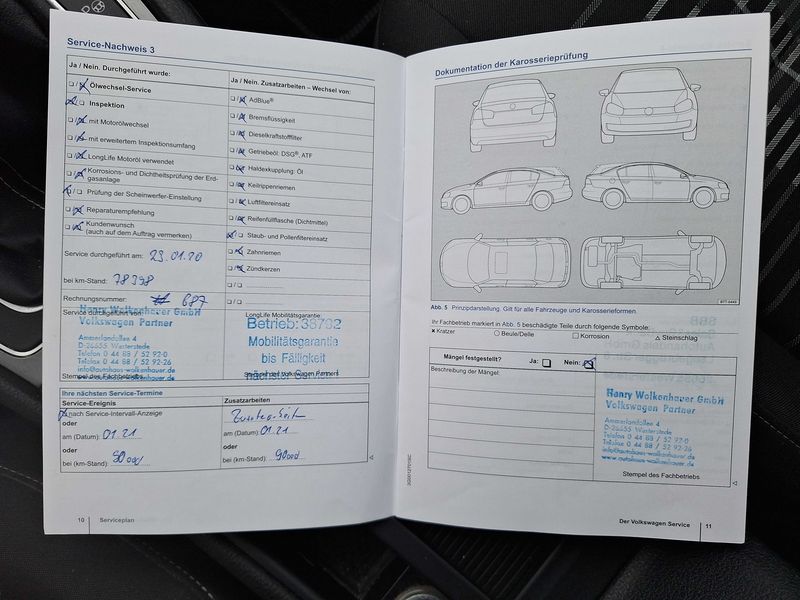 Service-Nachweis 3
Ja / Nein. Durchgeführt wurde:
Ölwechsel-Service
Inspektion
mit Motorölwechsel
mit erweitertem Inspektionsumfang
LongLife Motoröl verwendet
Korrosions- und Dichtheitsprüfung der Erd-
gasanlage
Prüfung der Scheinwerfer-Einstellung
Reparaturempfehlung
Kundenwunsch
(auch auf dem Auftrag vermerken)
Service durchgeführt am: 23.01.20
bei km-Stand: 78398
Rechnungsnummer: 687
Service durchgeführt von:
Henry Wolkenhauer GmbH
Volkswagen Partner
Ammerlandallee 4
D-26655 Westerstede
Telefon 0 44 88 / 52 92-0
Telefax 0 44 88 / 52 92-26
info@autohaus-wolkenhauer.de
www.autohaus-wolkenhauer.de
Stempel des Fachbetriebs
Ja / Nein. Zusatzarbeiten – Wechsel von:
AdBlue®
Bremsflüssigkeit
Dieselkraftstofffilter
Getriebeöl: DSG®, ATF
Haldexkupplung: Öl
Keilrippenriemen
Luftfiltereinsatz
Reifenfüllflasche (Dichtmittel)
Staub- und Pollenfiltereinsatz
Zahnriemen
Zündkerzen
LongLife Mobilitätsgarantie:
Betrieb: 38792
Mobilitätsgarantie
bis Fälligkeit
nächster Service
Stempel des Volkswagen Partners
Ihre nächsten Service-Termine
Service-Ereignis
nach Service-Intervall-Anzeige
oder
am (Datum): 01.21
oder
bei (km-Stand): 90000
Zusatzarbeiten
am (Datum): 01.21
oder
bei (km-Stand): 90000
10 Serviceplan
Dokumentation der Karosserieprüfung
B7T-0449
Abb. 5 Prinzipdarstellung. Gilt für alle Fahrzeuge und Karosserieformen.
Ihr Fachbetrieb markiert in Abb. 5 beschädigte Teile durch folgende Symbole:
× Kratzer ○ Beule/Delle □ Korrosion △ Steinschlag
Mängel festgestellt? Ja: Nein:
Beschreibung der Mängel:
Henry Wolkenhauer GmbH
Volkswagen Partner
Ammerlandallee 4
D-26655 Westerstede
Telefon 0 44 88 / 52 92-0
Telefax 0 44 88 / 52 92-26
info@autohaus-wolkenhauer.de
www.autohaus-wolkenhauer.de
Stempel des Fachbetriebs
Der Volkswagen Service 11